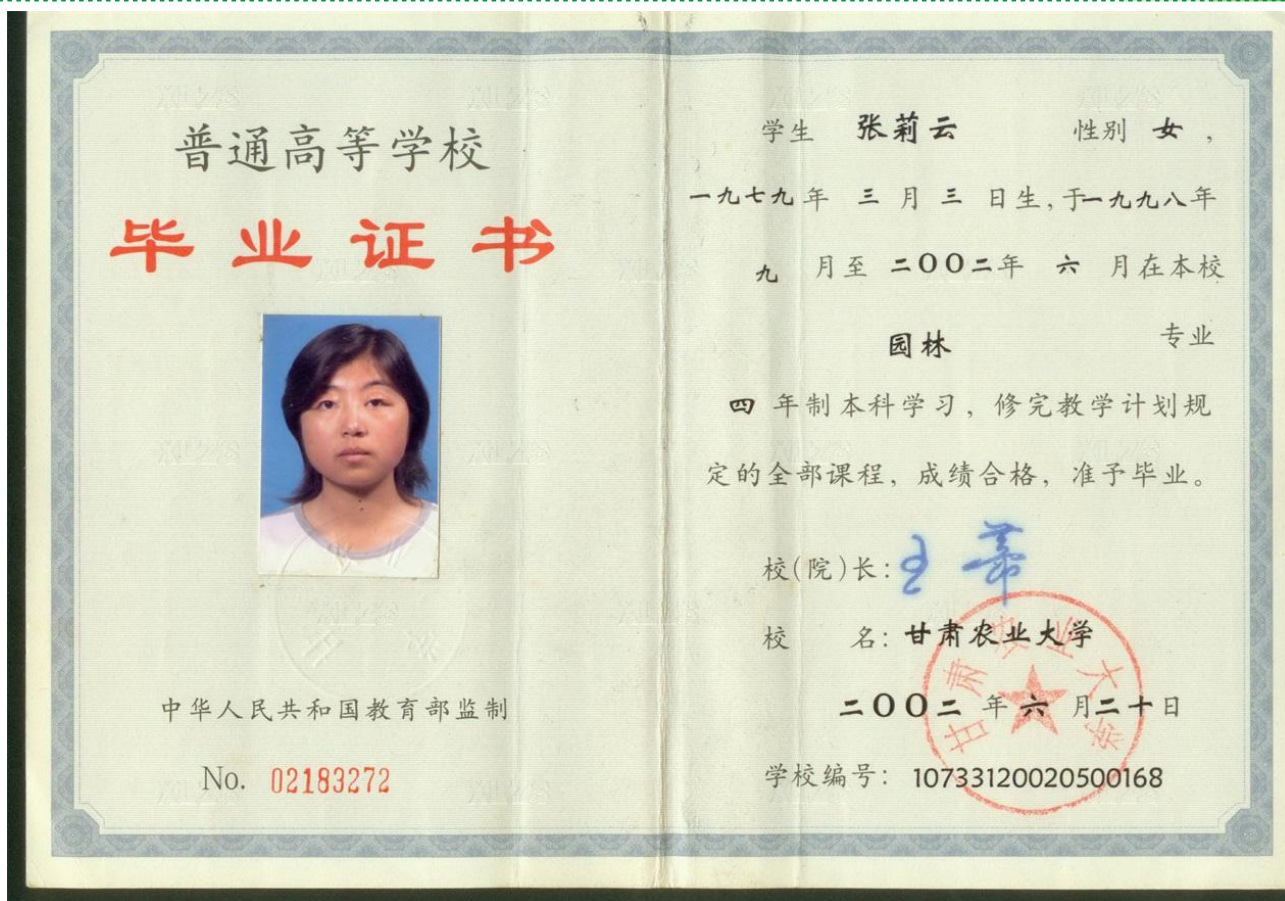 普通高等学校
毕业证书
中华人民共和国教育部监制
No. 02183272
学生 张莉云 性别 女,
一九七九年 三 月 三 日生,于一九九八年
九 月至 二00二年 六 月在本校
园林 专业
四 年制本科学习,修完教学计划规
定的全部课程,成绩合格,准予毕业。
校(院)长:
校 名:甘肃农业大学
二00二 年 六 月二十日
学校编号: 10733120020500168
甘肃农业大学